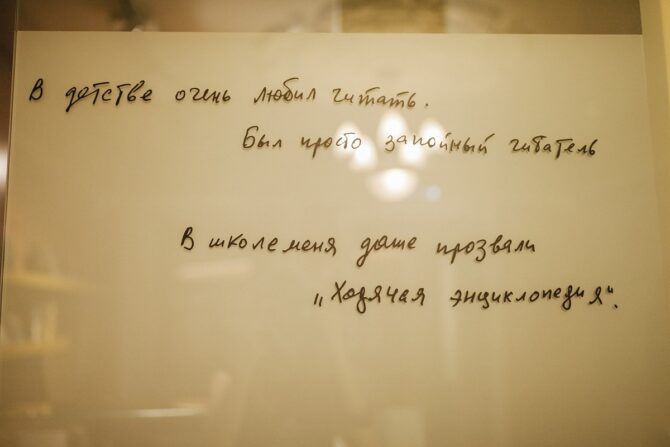 В детстве очень любил читать.
Был просто запойный читатель
В школе меня даже прозвали
„Ходячая энциклопедия“.